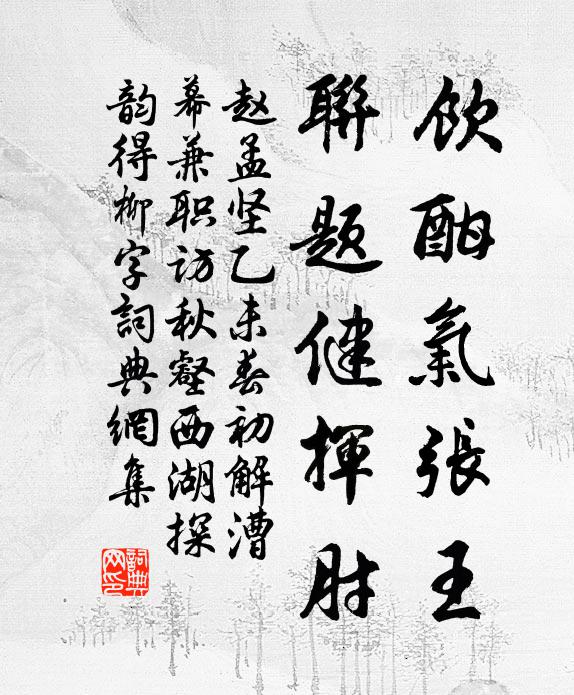 飲酣氣張王
聯題健揮肘
赵孟坚乙未春初解漕
幕兼职访秋壑西湖探
韵得柳字詞典網集
詞典网印